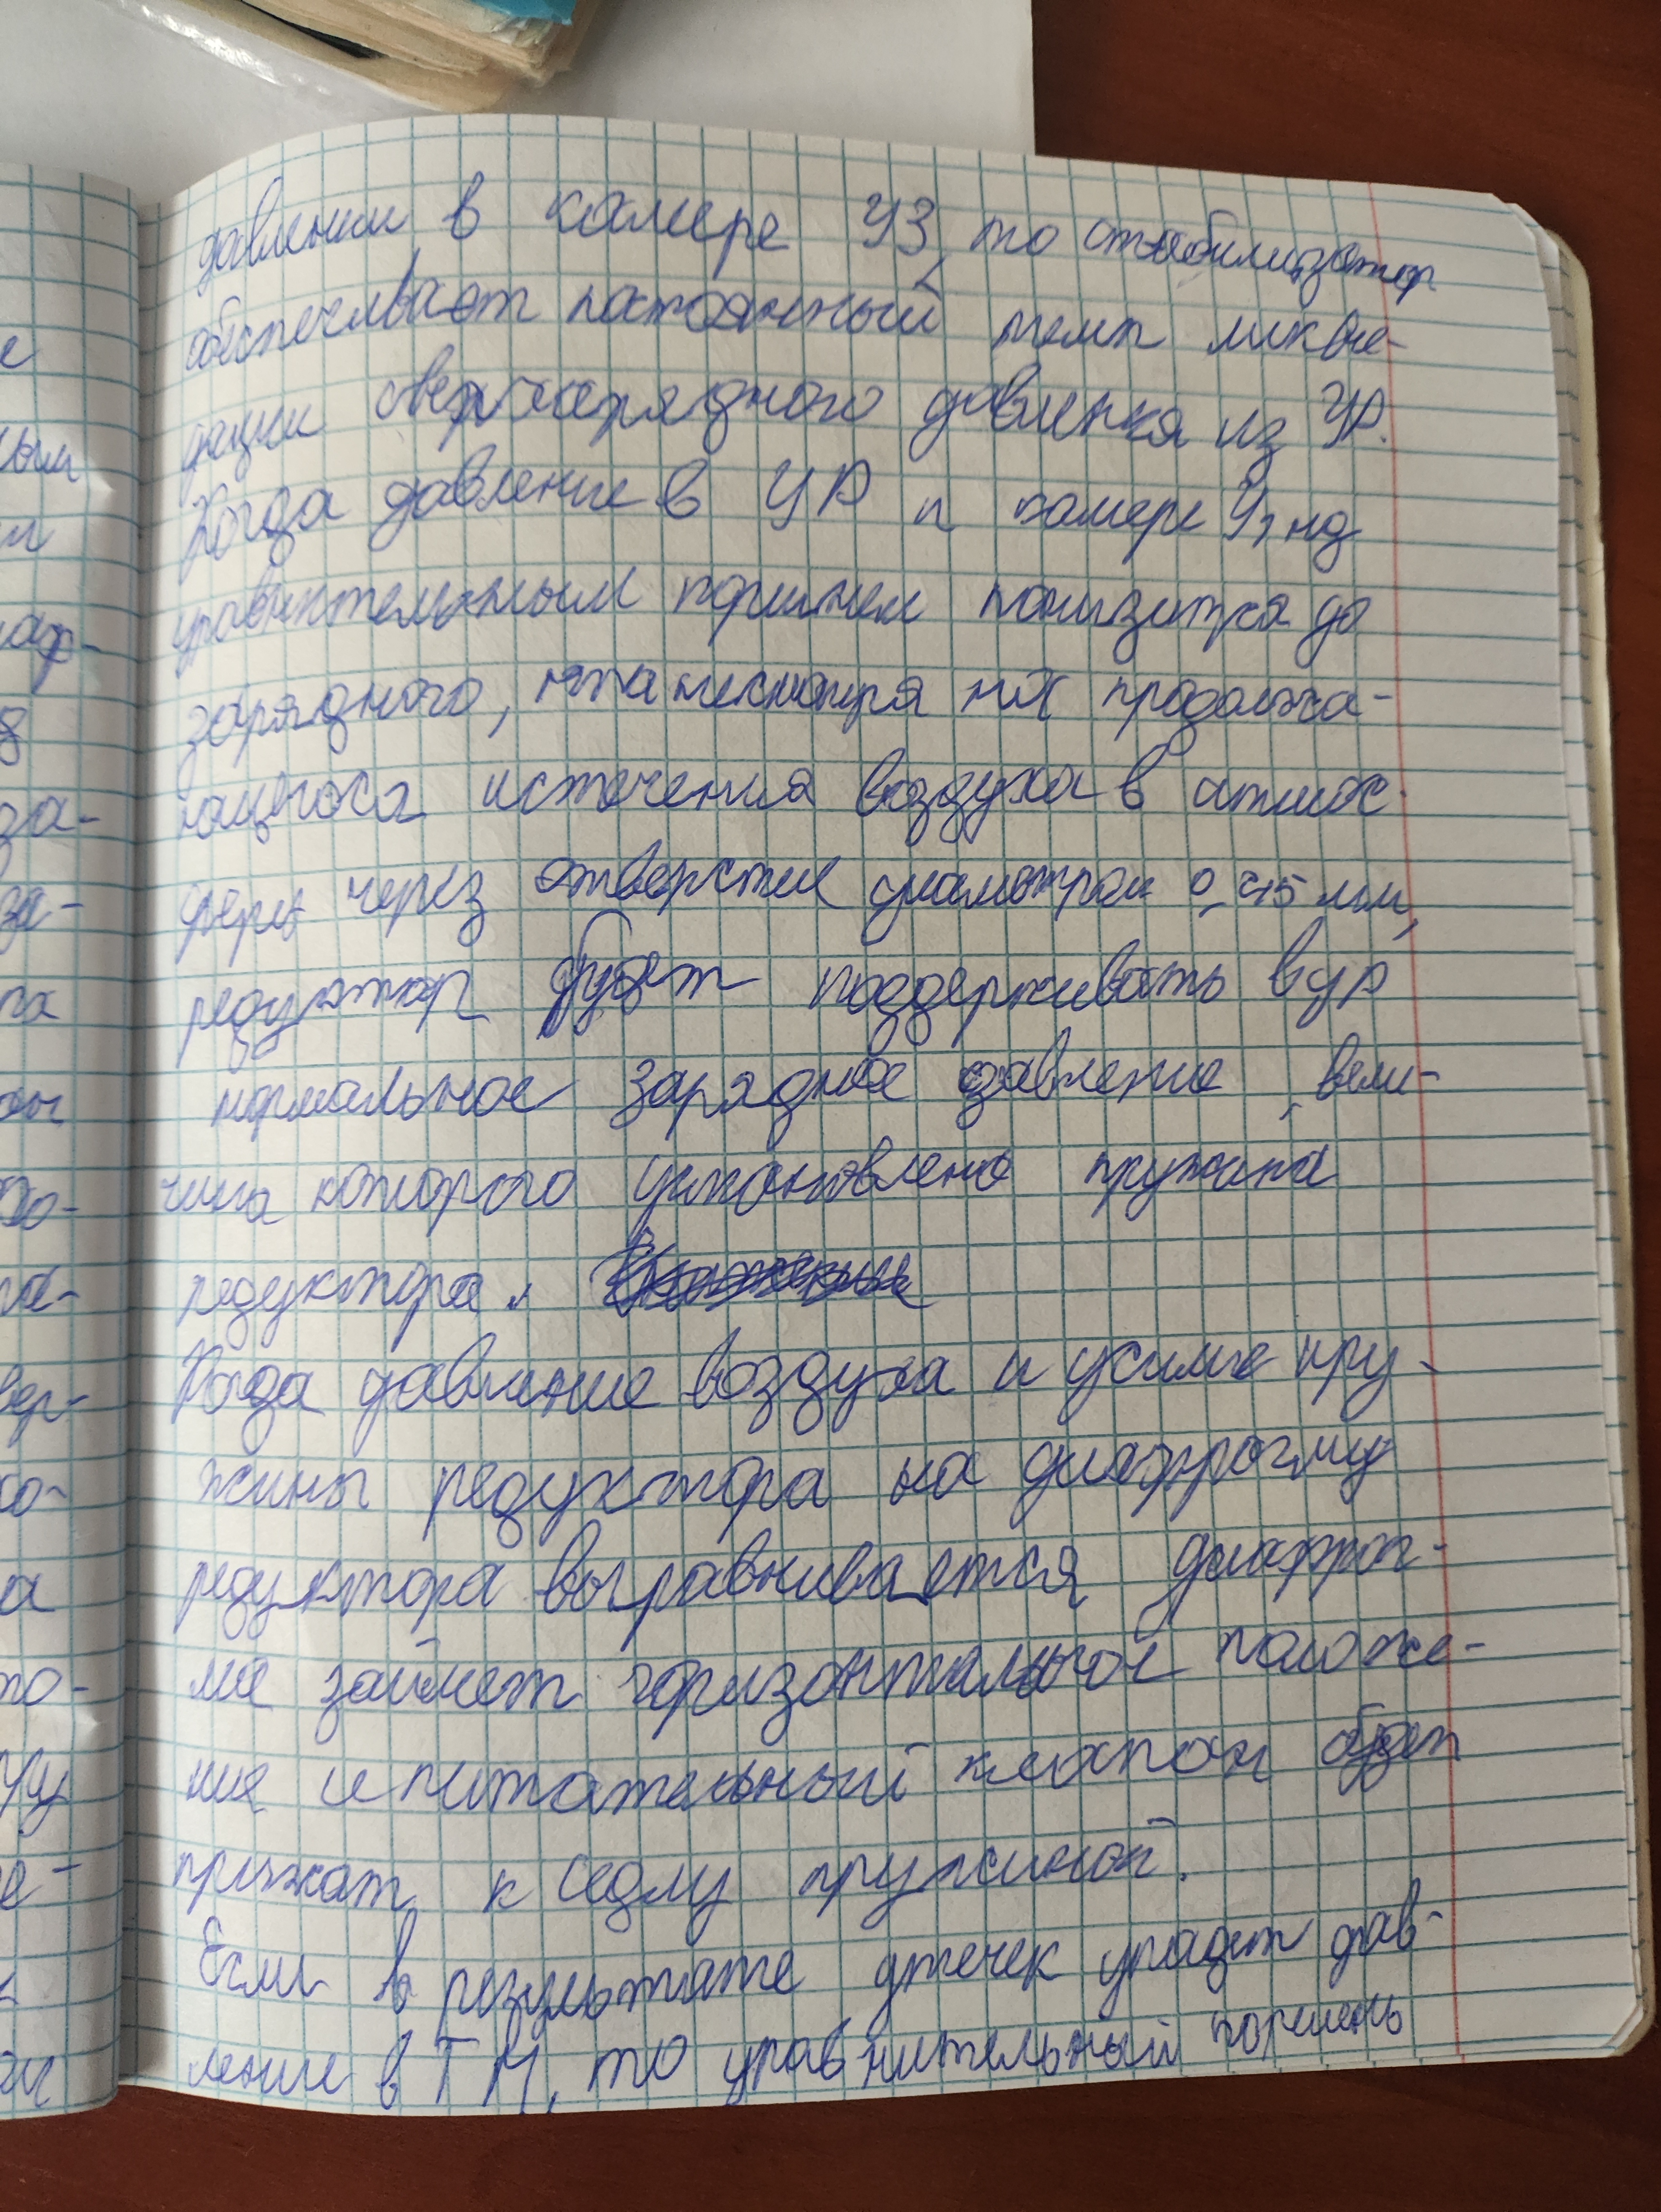 давлении в камере У3, то стабилизатор
обеспечивает постоянный темп ликви-
дации сверхзарядного давления из УР.
Когда давление в УР и камере У, над
уравнительным поршнем понизится до
зарядного, то несмотря на продолжа-
ющегося истечения воздуха в атмос-
феры через отверстие диаметром 0,45 мм,
редуктор будет поддерживать в УР
нормальное зарядное давление, вели-
чина которого установлена пружина
редуктора.
Когда давление воздуха и усилие пру-
жины редуктора на диафрагму
редуктора выравнивается диафраг-
ма займет горизонтальное положе-
ние и питательный клапан будет
прижат к седлу пружиной.
Если в результате утечек упадет дав-
ление в ТМ, то уравнительный поршень